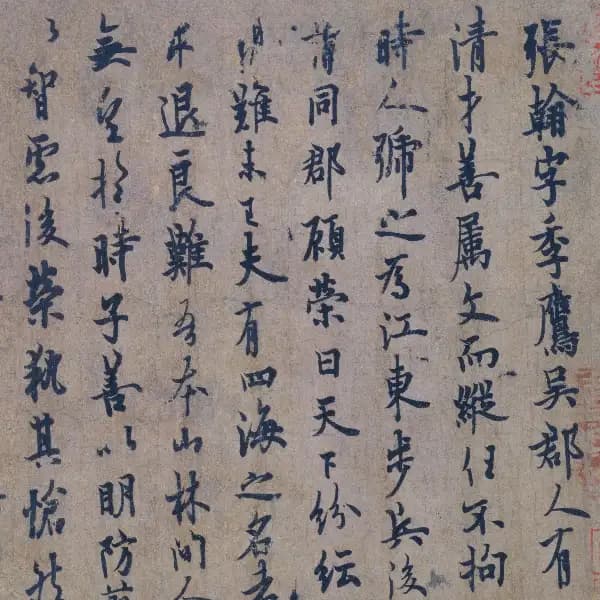 張翰字季鷹吳郡人有
清才善属文而縱任不拘
時人號之為江東步兵後
謂同郡顧榮曰天下紛紜
難未已夫有四海之名者
求退良難吾本山林間人
無望於時子善以明防前
以智慮後榮執其愴然